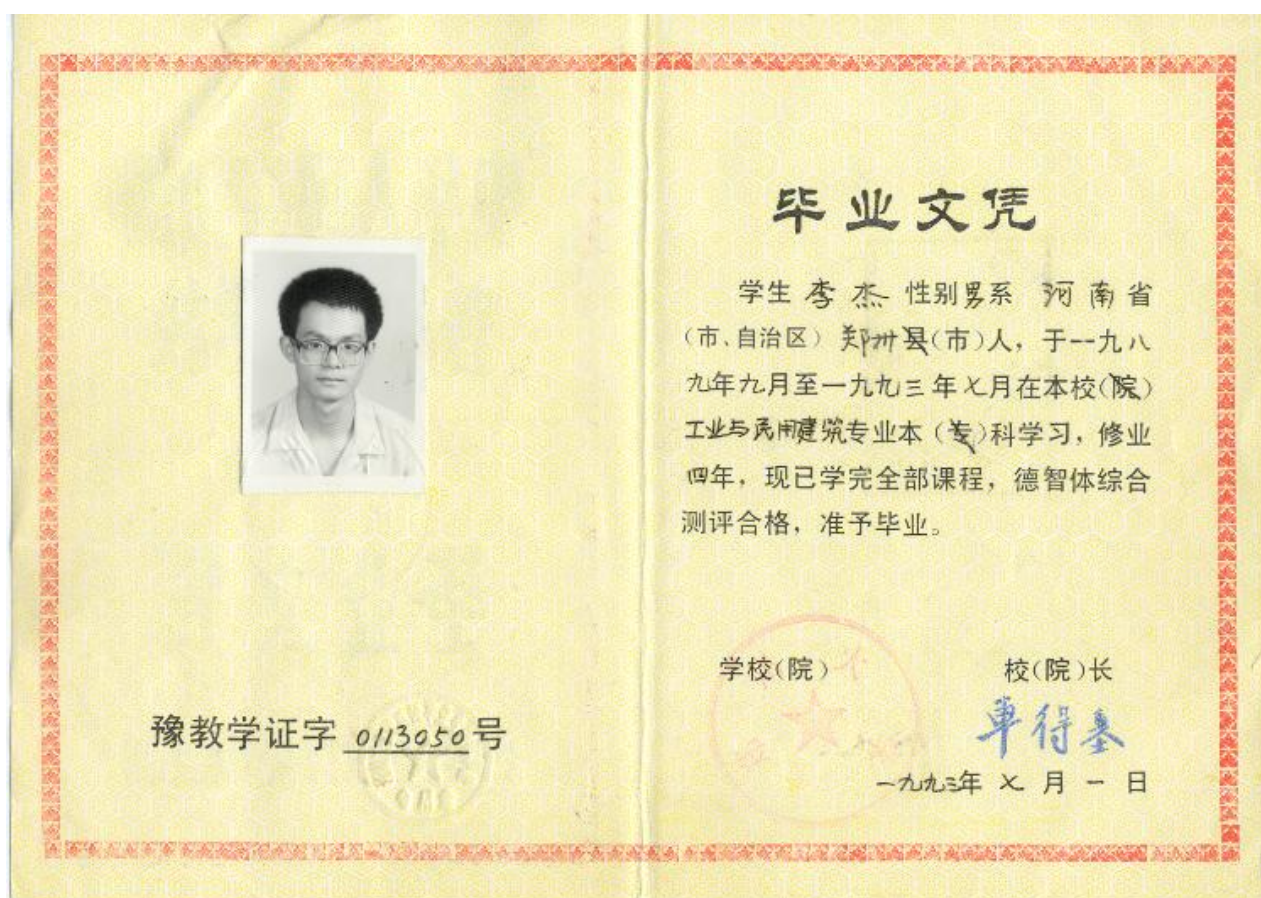 豫教学证字 0113050 号
毕业文凭
学生 李杰 性别男系 河南省
(市、自治区) 郑州县(市)人，于一九八
九年九月至一九九三年七月在本校(院)
工业与民用建筑专业本(专)科学习，修业
四年，现已学完全部课程，德智体综合
测评合格，准予毕业。
学校(院) 校(院)长
单得基
一九九三年 七 月 一 日